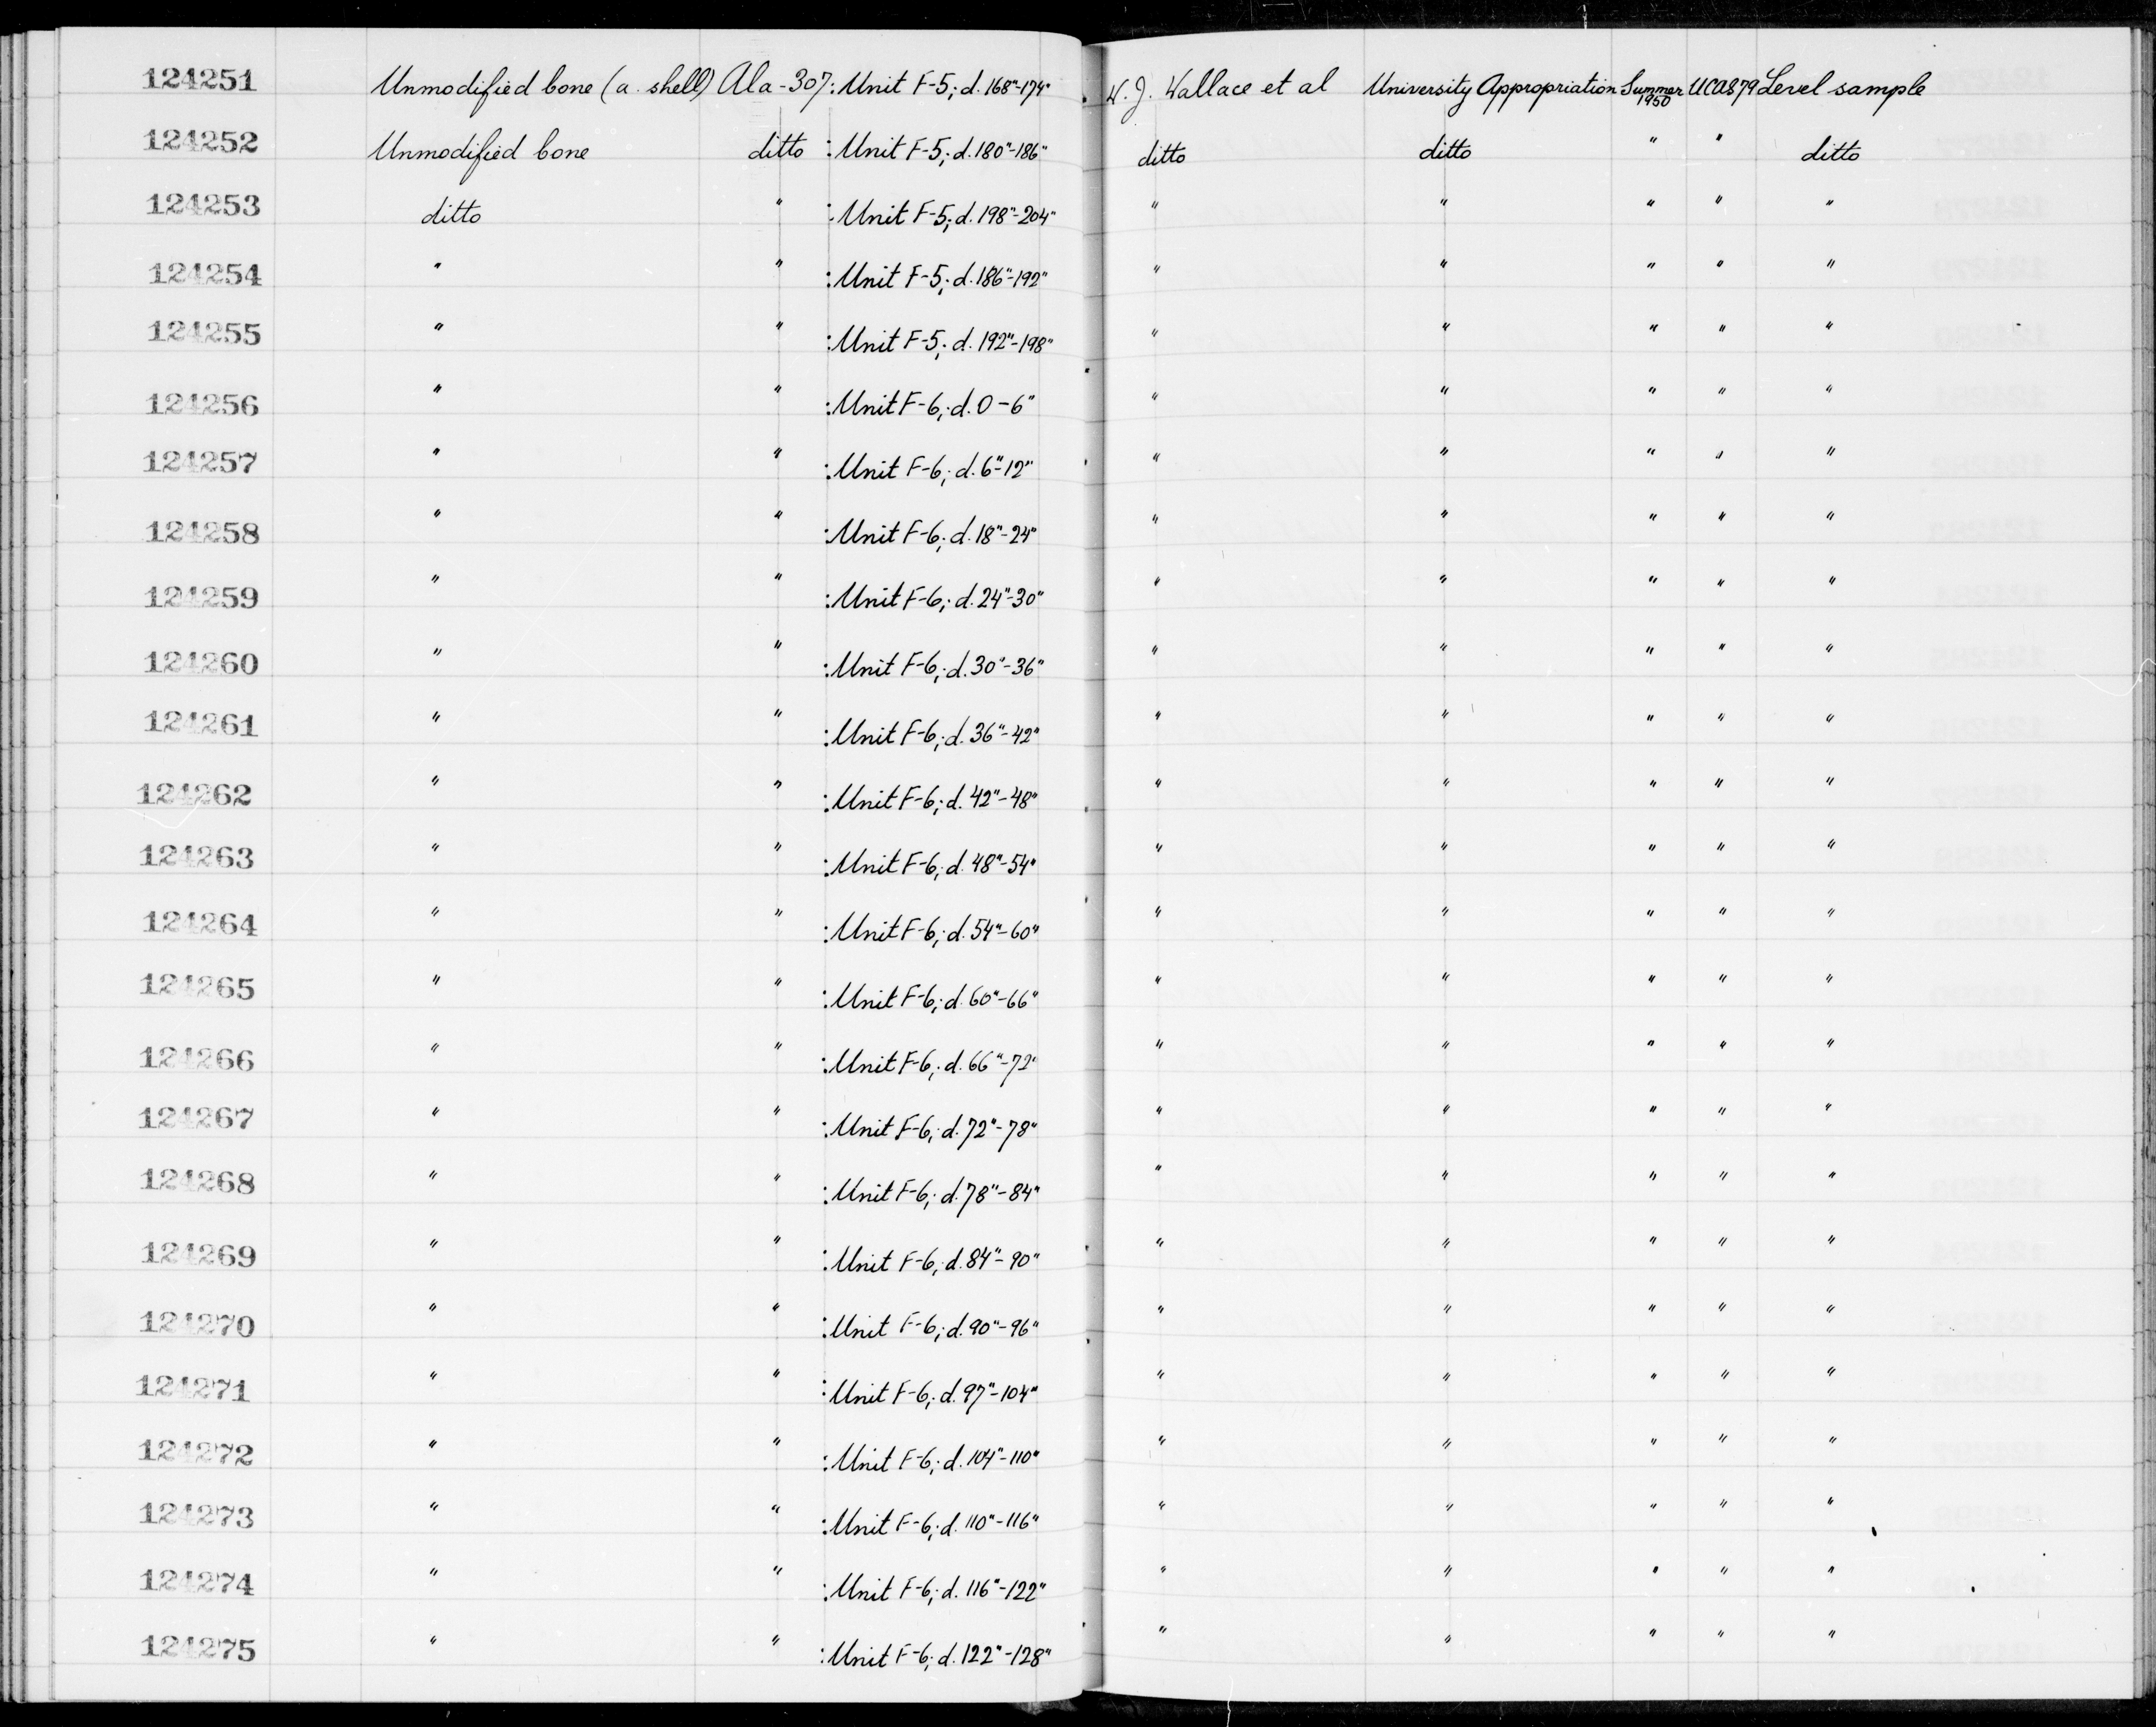 124251 Unmodified bone (a. shell) Ala-307: Unit F-5; d. 168"-174" W. J. Wallace et al University Appropriation Summer 1950 UCAS79 Level sample
124252 Unmodified bone ditto : Unit F-5; d. 180"-186" ditto ditto " " ditto
124253 ditto " : Unit F-5; d. 198"-204" " " " " "
124254 " " : Unit F-5; d. 186"-192" " " " " "
124255 " " : Unit F-5; d. 192"-198" " " " " "
124256 " " : Unit F-6; d. 0-6" " " " " "
124257 " " : Unit F-6; d. 6"-12" " " " " "
124258 " " : Unit F-6; d. 18"-24" " " " " "
124259 " " : Unit F-6; d. 24"-30" " " " " "
124260 " " : Unit F-6; d. 30"-36" " " " " "
124261 " " : Unit F-6; d. 36"-42" " " " " "
124262 " " : Unit F-6; d. 42"-48" " " " " "
124263 " " : Unit F-6; d. 48"-54" " " " " "
124264 " " : Unit F-6; d. 54"-60" " " " " "
124265 " " : Unit F-6; d. 60"-66" " " " " "
124266 " " : Unit F-6; d. 66"-72" " " " " "
124267 " " : Unit F-6; d. 72"-78" " " " " "
124268 " " : Unit F-6; d. 78"-84" " " " " "
124269 " " : Unit F-6; d. 84"-90" " " " " "
124270 " " : Unit F-6; d. 90"-96" " " " " "
124271 " " : Unit F-6; d. 97"-104" " " " " "
124272 " " : Unit F-6; d. 104"-110" " " " " "
124273 " " : Unit F-6; d. 110"-116" " " " " "
124274 " " : Unit F-6; d. 116"-122" " " " " "
124275 " " : Unit F-6; d. 122"-128" " " " " "